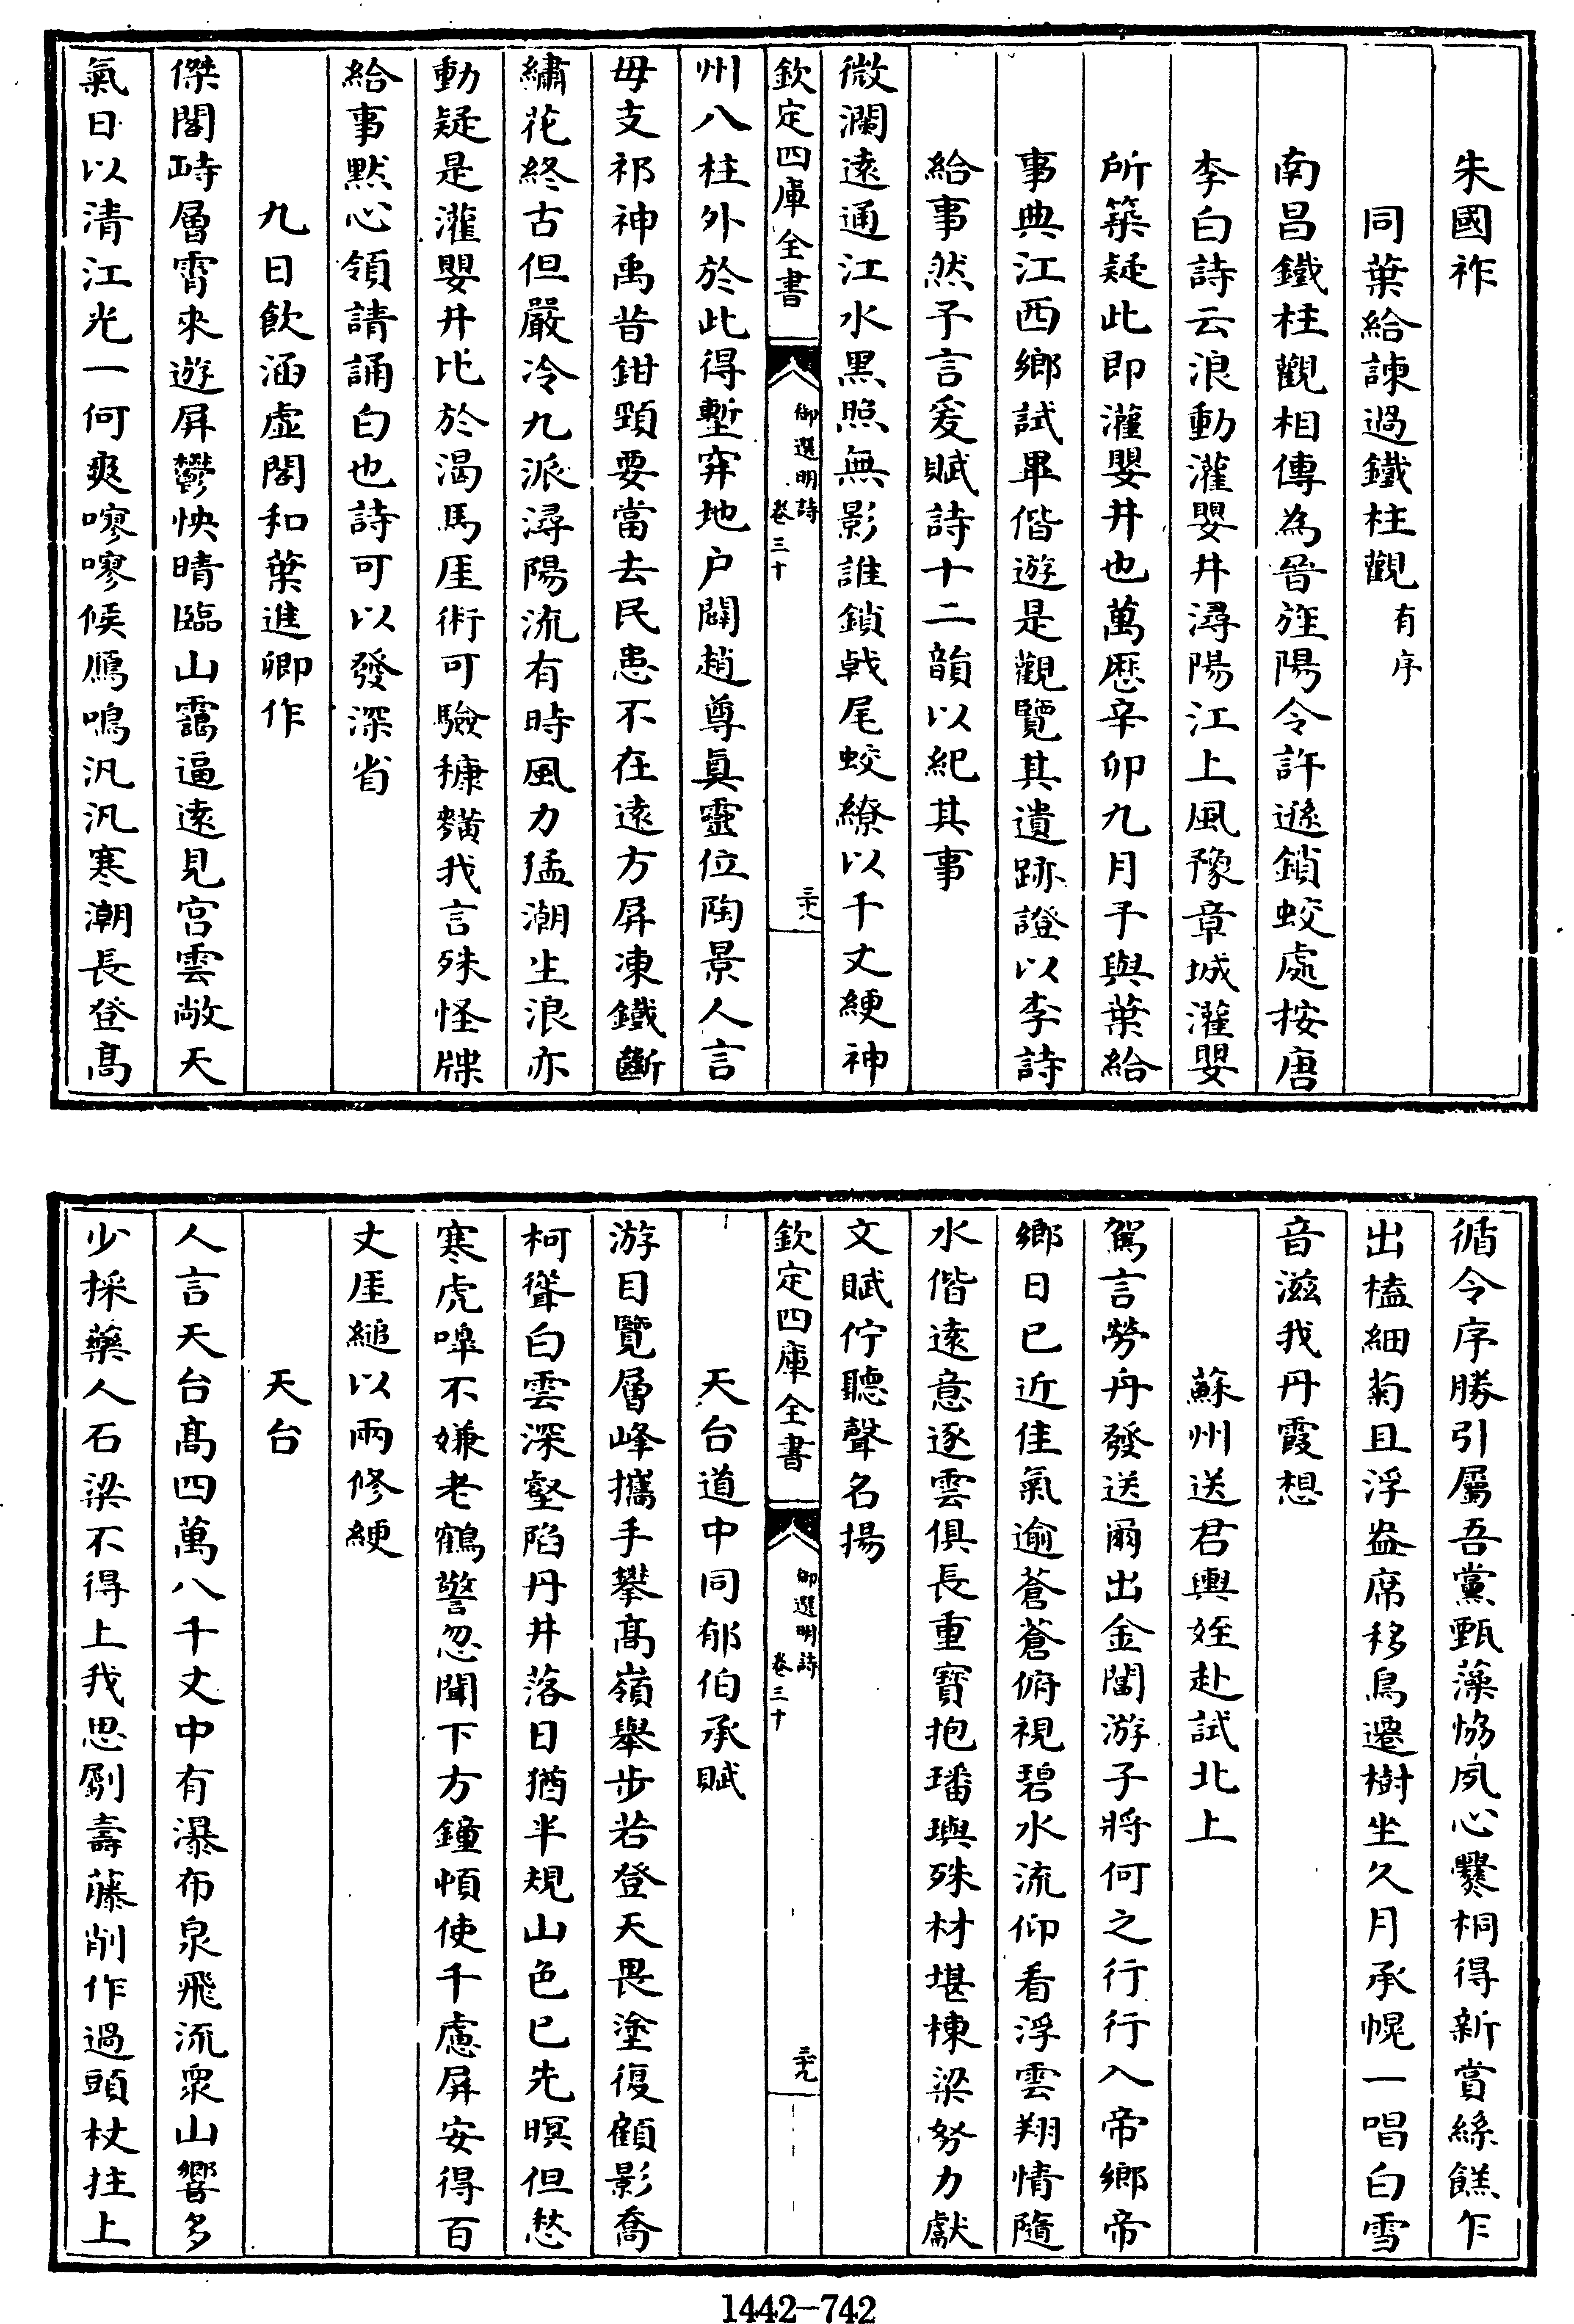 朱國祚
同葉給諫過鐵柱觀有序
南昌鐵柱觀相傳為晉旌陽令許遜鎖蛟處按唐
李白詩云浪動灌嬰井潯陽江上風豫章城灌嬰
所築疑此即灌嬰井也萬歷辛卯九月予與葉給
事典江西鄉試畢偕遊是觀覽其遺跡證以李詩
給事然予言爰賦詩十二韻以紀其事
微瀾遠通江水黑照無影誰鎖戟尾蛟繚以千丈綆神
欽定四庫全書
御選明詩
卷三十
三十八
州八柱外於此得塹穽地户闢趙尊真靈位陶景人言
毋支祁神禹昔鉗頸要當去民患不在遠方屏凍鐵斷
繡花終古但嚴冷九派潯陽流有時風力猛潮生浪亦
動疑是灌嬰井比於渴馬厓術可驗穅䵃我言殊怪牒
給事黙心領請誦白也詩可以發深省
九日飲涵虛閣和葉進卿作
傑閣峙層霄來遊屏鬱怏晴臨山靄逼遠見宫雲敞天
氣日以清江光一何爽嘐嘐候鴈鳴汎汎寒潮長登高
循令序勝引屬吾黨甄藻恊夙心爨桐得新賞絲餻乍
出榼細菊且浮盎席移鳥遷樹坐久月承幌一唱白雪
音滋我丹霞想
蘇州送君輿姪赴試北上
駕言勞舟發送爾出金閶游子將何之行行入帝鄉帝
鄉日已近佳氣逾蒼蒼俯視碧水流仰看浮雲翔情隨
水偕遠意逐雲俱長重寶抱璠璵殊材堪棟梁努力獻
文賦佇聽聲名揚
欽定四庫全書
御選明詩
卷三十
三十九
天台道中同郁伯承賦
游目覽層峰攜手攀高嶺舉步若登天畏塗復顧影喬
柯聳白雲深壑陷丹井落日猶半規山色已先暝但愁
寒虎嘷不嫌老鶴警忽聞下方鐘頓使千慮屏安得百
丈厓縋以兩修綆
天台
人言天台高四萬八千丈中有瀑布泉飛流衆山響多
少採藥人石梁不得上我思劚壽藤削作過頭杖拄上
1442—742